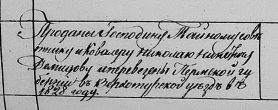 Проданы Господину Тайному совѣ
тнику и Ковалеру Николаю Никитичу
Демидову и переведены Пермской гу
бернии въ Верхотурской уѣздъ въ
1828 году.